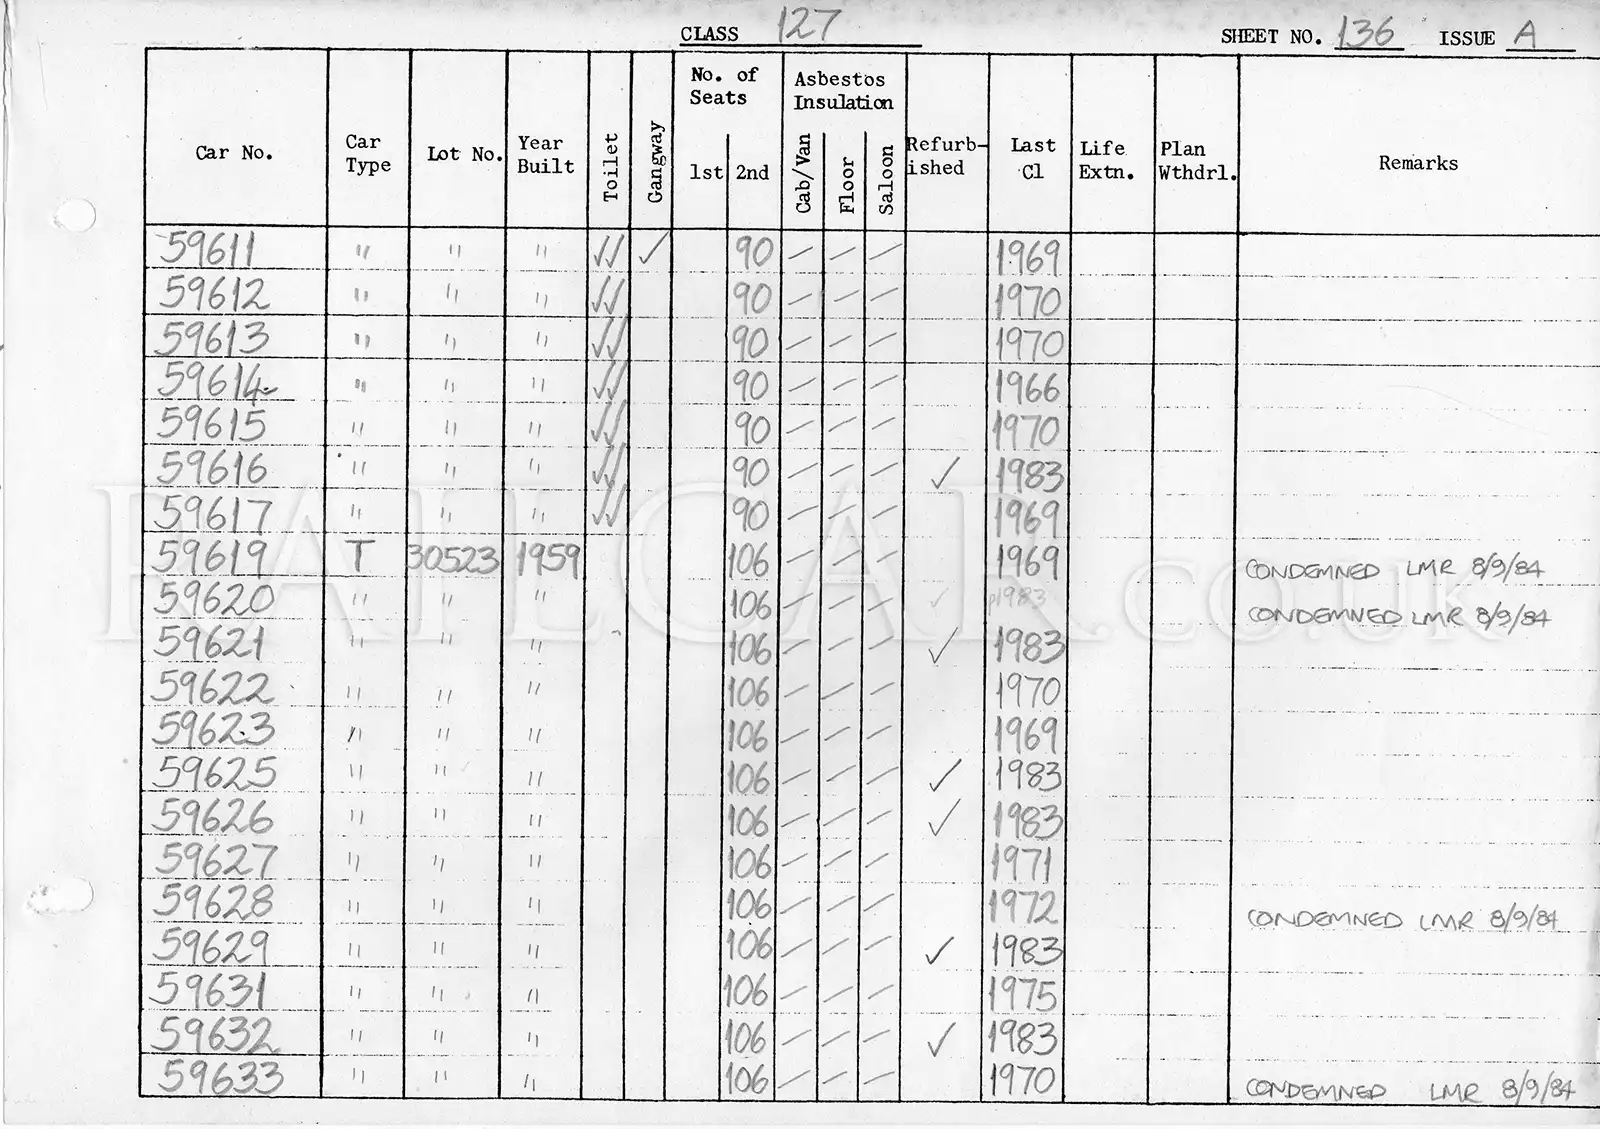 CLASS 127 SHEET NO. 136 ISSUE A
Car No. Car Type Lot No. Year Built Toilet Gangway No. of Seats 1st 2nd Asbestos Insulation Cab/Van Floor Saloon Refurb-ished Last Cl Life Extn. Plan Wthdrl. Remarks
59611 " " " ✓✓ ✓ 90 — — — 1969
59612 " " " ✓✓ 90 — — — 1970
59613 " " " ✓✓ 90 — — — 1970
59614 " " " ✓✓ 90 — — — 1966
59615 " " " ✓✓ 90 — — — 1970
59616 " " " ✓✓ 90 — — — ✓ 1983
59617 " " " ✓✓ 90 — — — 1969
59619 T 30523 1959 106 — — — 1969 CONDEMNED LMR 8/9/84
59620 " " " 106 — — — ✓ 1983 CONDEMNED LMR 8/9/84
59621 " " " 106 — — — ✓ 1983
59622 " " " 106 — — — 1970
59623 " " " 106 — — — 1969
59625 " " " 106 — — — ✓ 1983
59626 " " " 106 — — — ✓ 1983
59627 " " " 106 — — — 1971
59628 " " " 106 — — — 1972 CONDEMNED LMR 8/9/84
59629 " " " 106 — — — ✓ 1983
59631 " " " 106 — — — 1975
59632 " " " 106 — — — ✓ 1983
59633 " " " 106 — — — 1970 CONDEMNED LMR 8/9/84
RAILCAR.CO.UK